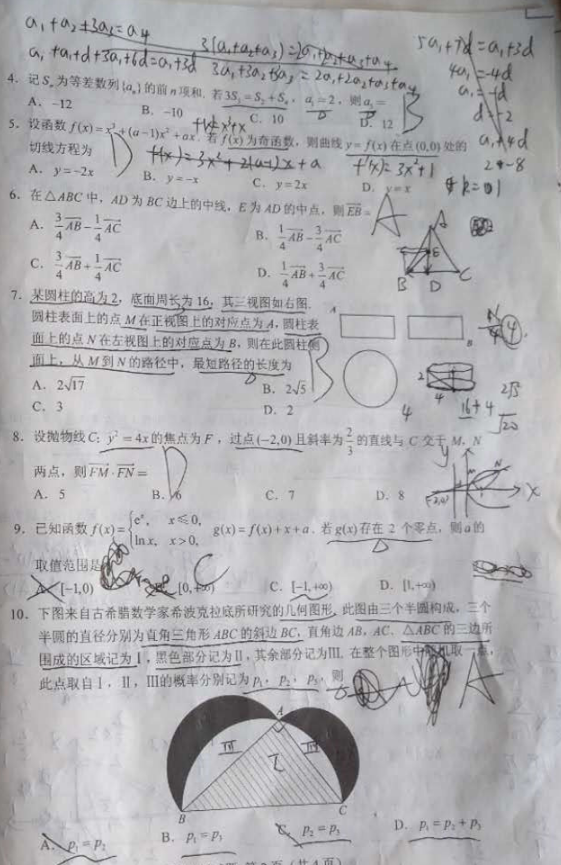 a₁+a₂+3a₃=a₄
3(a₁+a₂+a₃)=2a₁+2a₂+a₃+a₄
a₁+a₁+d+3a₁+6d=a₁+3d
3a₁+3a₂+3a₃=2a₁+2a₂+a₃+a₄
5a₁+7d=a₁+3d
4a₁=-4d
a₁=-d
d=-2
a₁+4d
2+-8
4. 记Sₙ为等差数列{aₙ}的前n项和. 若3S₃=S₂+S₄, a₁=2, 则a₅=
A. -12
B. -10
C. 10
D. 12
B
5. 设函数f(x)=x³+(a-1)x²+ax. 若f(x)为奇函数, 则曲线y=f(x)在点(0,0)处的
切线方程为
D
f(x)=x³+x
f'(x)=3x²+2(a-1)x+a
f'(x)=3x²+1
A. y=-2x
B. y=-x
C. y=2x
D. y=x
k=1
6. 在△ABC中, AD为BC边上的中线, E为AD的中点, 则EB=
A
A. 3/4 AB - 1/4 AC
B. 1/4 AB - 3/4 AC
C. 3/4 AB + 1/4 AC
D. 1/4 AB + 3/4 AC
A
E
B D C
7. 某圆柱的高为2, 底面周长为16, 其三视图如右图.
圆柱表面上的点M在正视图上的对应点为A, 圆柱表
面上的点N在左视图上的对应点为B, 则在此圆柱侧
面上, 从M到N的路径中, 最短路径的长度为
B
A
B
A. 2√17
B. 2√5
C. 3
D. 2
2
4
4
16+4
2√5
√20
8. 设抛物线C: y²=4x的焦点为F, 过点(-2,0)且斜率为2/3的直线与C交于M, N
两点, 则FM·FN=
D
A. 5
B. 6
C. 7
D. 8
y
N
x
(-2,0)
9. 已知函数f(x)={eˣ, x≤0, ln x, x>0, g(x)=f(x)+x+a. 若g(x)存在2个零点, 则a的
取值范围是
C
A. [-1,0)
[0,+∞)
C. [-1,+∞)
D. [1,+∞)
10. 下图来自古希腊数学家希波克拉底所研究的几何图形. 此图由三个半圆构成, 三个
半圆的直径分别为直角三角形ABC的斜边BC, 直角边AB, AC. △ABC的三边所
围成的区域记为Ⅰ, 黑色部分记为Ⅱ, 其余部分记为Ⅲ. 在整个图形中随机取一点,
此点取自Ⅰ, Ⅱ, Ⅲ的概率分别记为p₁, p₂, p₃, 则
A
A
Ⅲ
Ⅰ
Ⅲ
B
C
A. p₁=p₂
B. p₁=p₃
C. p₂=p₃
D. p₁=p₂+p₃